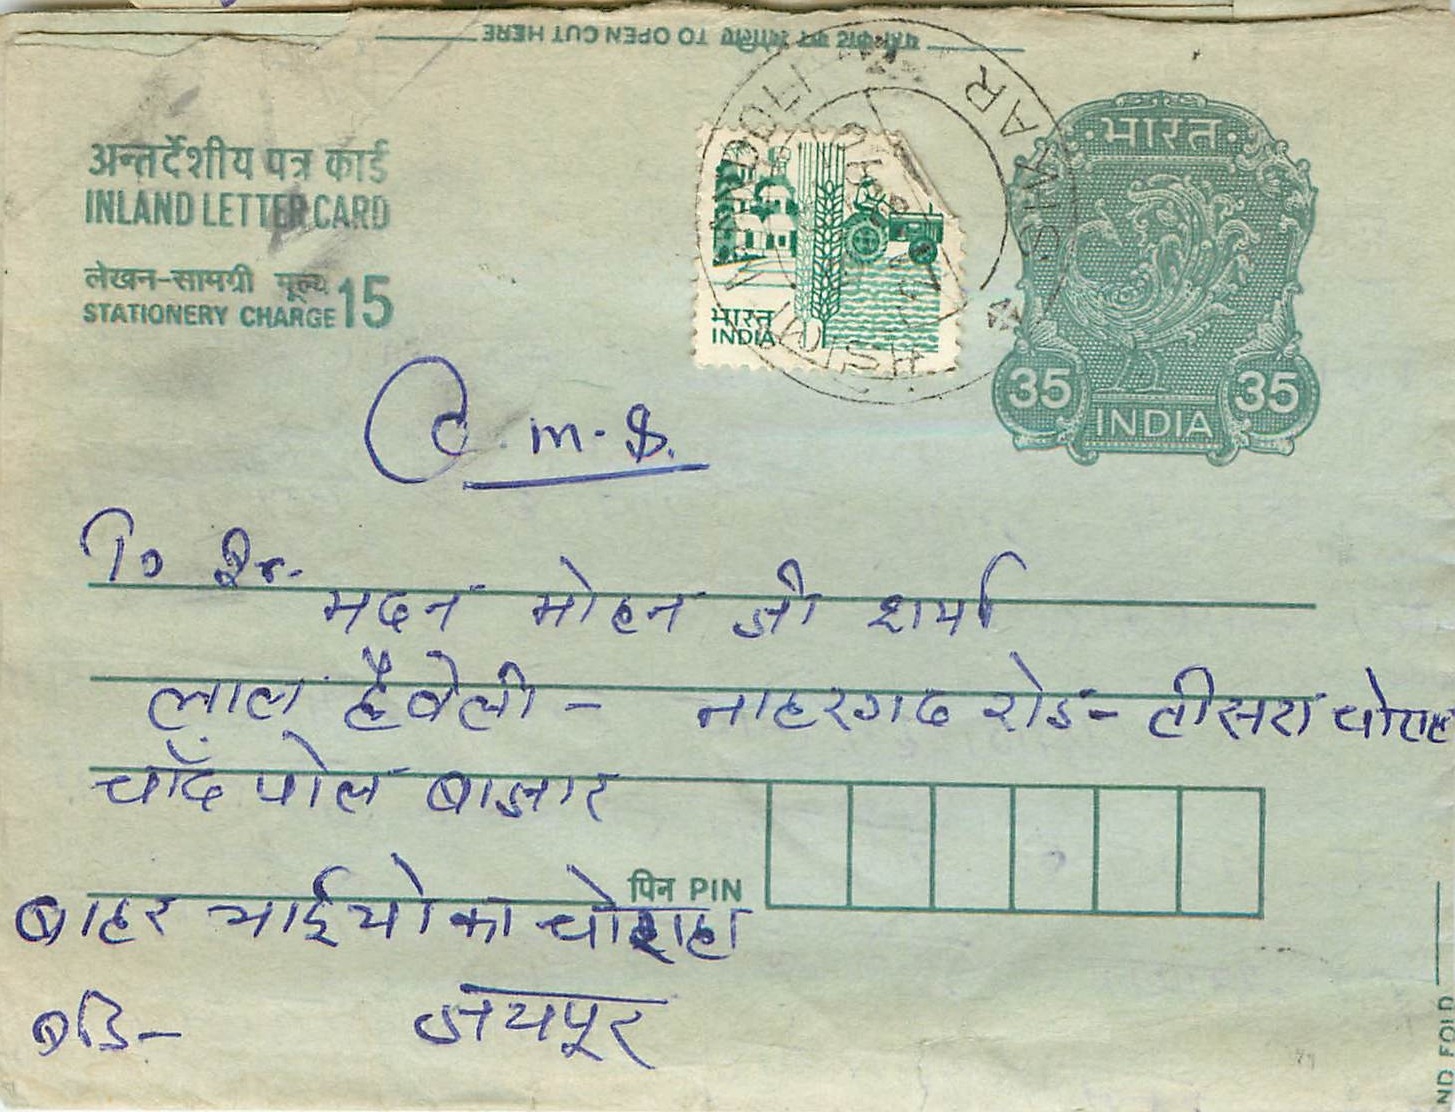 खोलने के लिए यहां काटिए TO OPEN CUT HERE
अन्तर्देशीय पत्र कार्ड
INLAND LETTER CARD
लेखन-सामग्री मूल्य 15
STATIONERY CHARGE
भारत
INDIA
भारत
35 35
INDIA
m. S.
To
मदन मोहन जी शर्मा
लाल हैवेली - नाहरगढ रोड - तीसरा
चाँद पोल बाजार
पिन PIN
बाहर भाईयो का चोराहा
जयपूर
ND FOLD